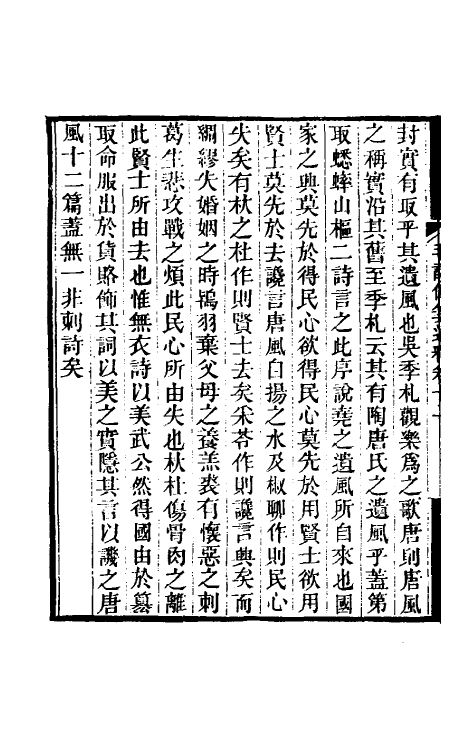 封實有取乎其遺風也吳季札觀樂爲之歌唐則唐風
之稱實沿其舊至季札云其有陶唐氏之遺風乎蓋第
取蟋蟀山樞二詩言之此序說堯之遺風所自來也國
家之興莫先於得民心欲得民心莫先於用賢士欲用
賢士莫先於去讒言唐風白揚之水及椒聊作則民心
失矣有杕之杜作則賢士去矣采苓作則讒言興矣而
綢繆失婚姻之時鴇羽棄父母之養羔裘有懷惡之刺
葛生悲攻戰之煩此民心所由失也杕杜傷骨肉之離
此賢士所由去也惟無衣詩以美武公然得國由於篡
取命服出於貨賂佈其詞以美之實隱其言以譏之唐
風十二篇蓋無一非刺詩矣